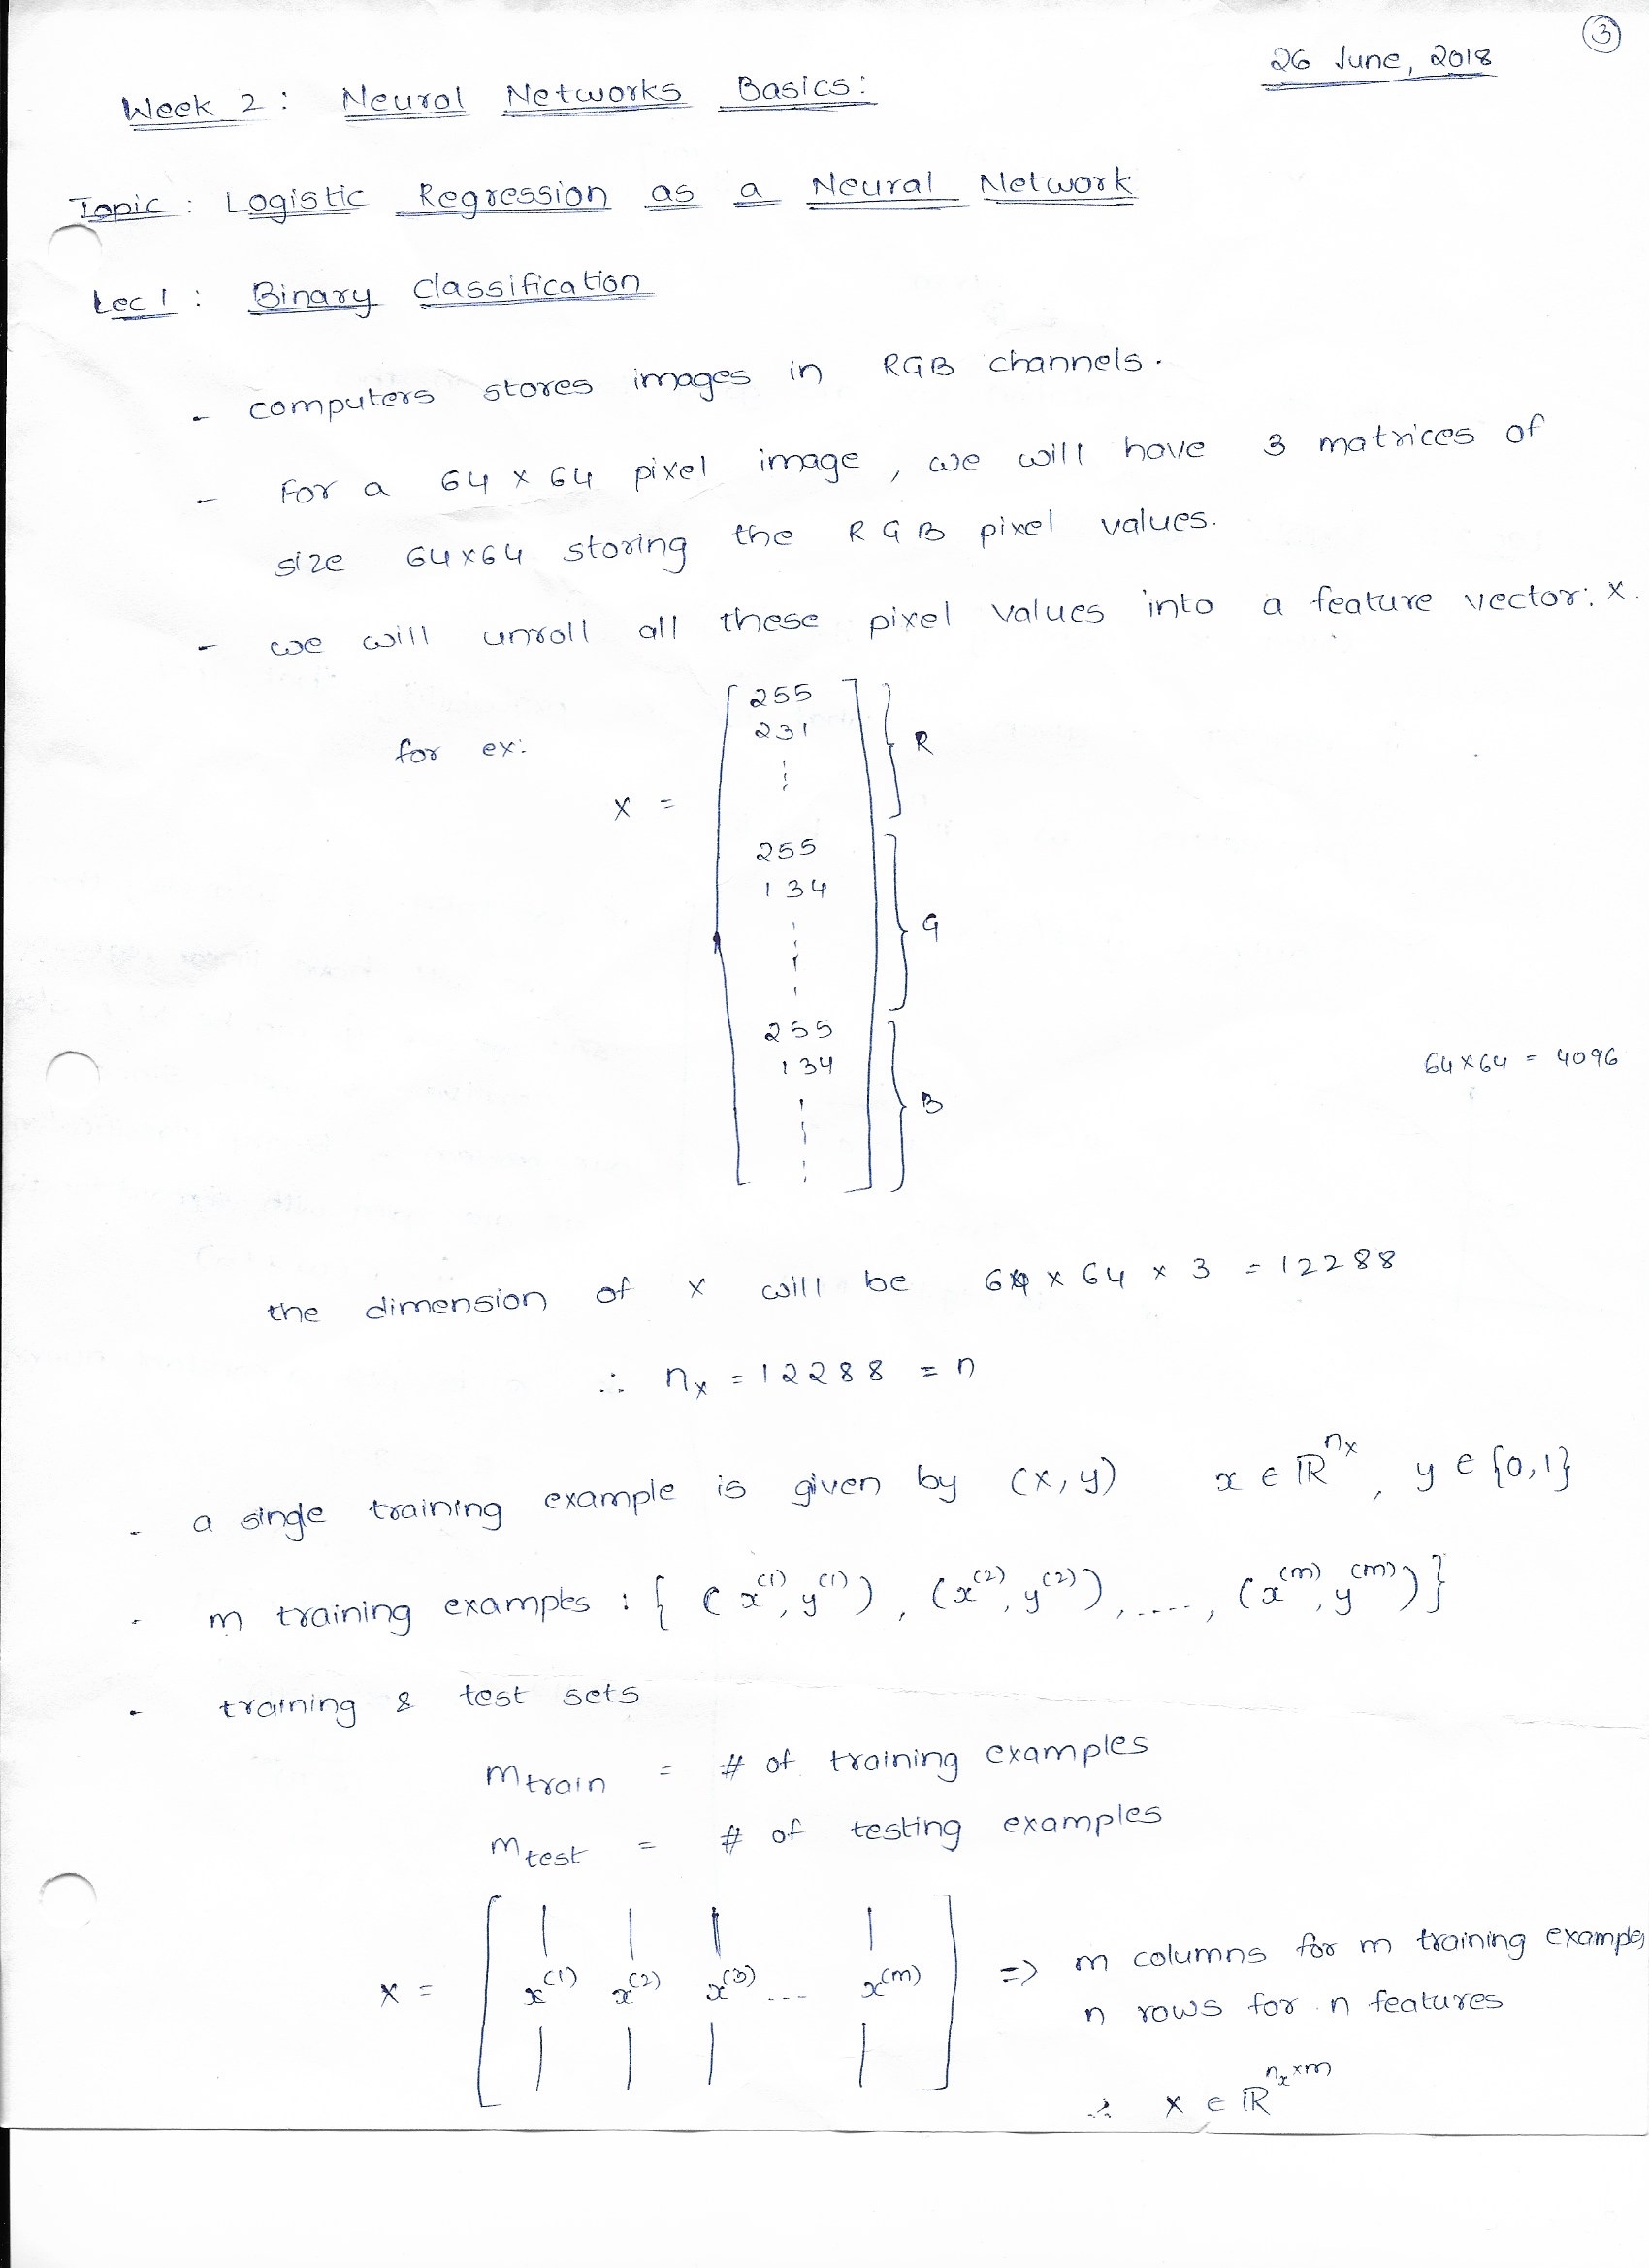 3
26 June, 2018
Week 2 : Neural Networks Basics:
Topic : Logistic Regression as a Neural Network
Lec 1 : Binary classification
- computers stores images in RGB channels.
- For a 64 × 64 pixel image, we will have 3 matrices of
size 64×64 storing the RGB pixel values.
- we will unroll all these pixel values into a feature vector: X.
for ex:
X = [ 255
231
⋮ } R
255
134
⋮ } G
255
134
⋮ ] } B
64×64 = 4096
the dimension of X will be 64 × 64 × 3 = 12288
∴ nₓ = 12288 = n
- a single training example is given by (x, y) x ∈ ℝ^{nₓ}, y ∈ {0,1}
- m training examples : { (x^{(1)}, y^{(1)}), (x^{(2)}, y^{(2)}), ....., (x^{(m)}, y^{(m)}) }
- training & test sets
m_{train} = # of training examples
m_{test} = # of testing examples
X = [ x^{(1)} x^{(2)} x^{(3)} ... x^{(m)} ] => m columns for m training examples
n rows for n features
∴ X ∈ ℝ^{nₓ×m}